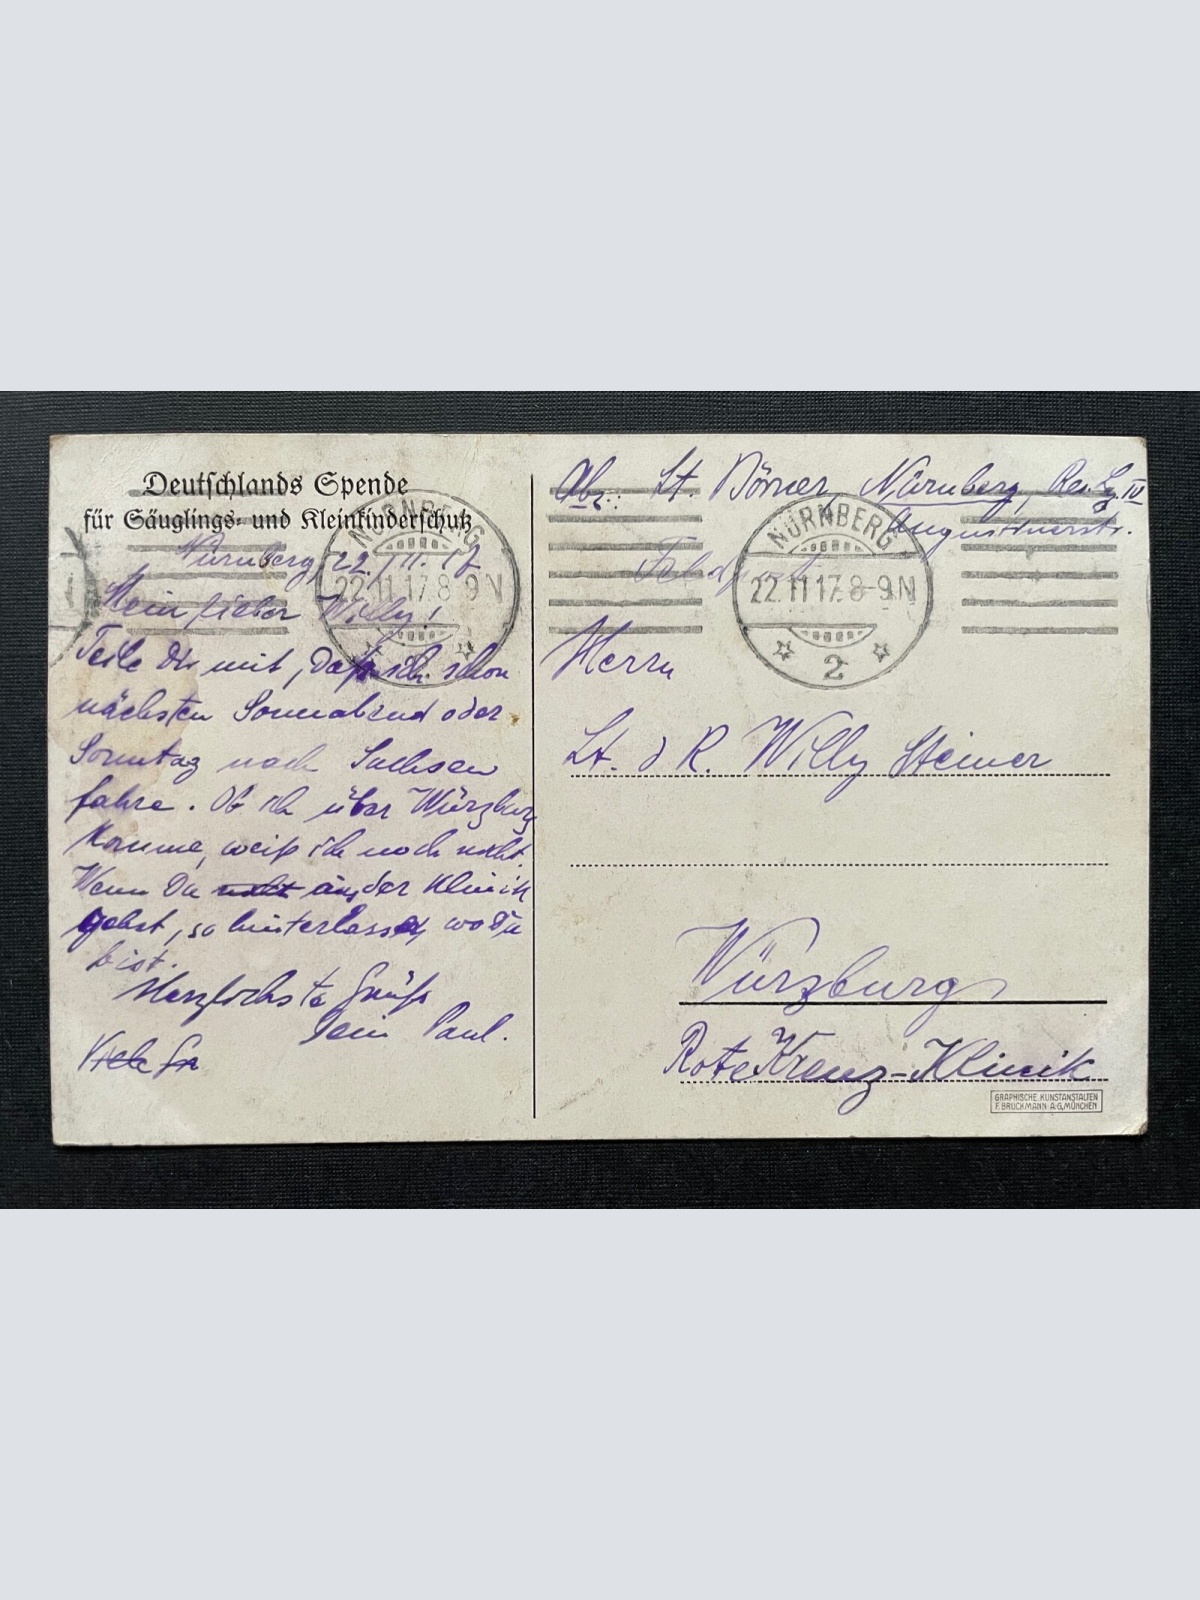 Deutschlands Spende
für Säuglings- und Kleinkinderschutz
Nürnberg, 22. 11. 17
Mein lieber Willy!
Teile Dir mit, daß ich schon
nächsten Sonnabend oder
Sonntag nach Sachsen
fahre. Ob ich über Würzburg
komme, weiß ich noch nicht.
Wenn Du nicht aus der Klinik
gehst, so hinterlasse, wo Du
bist.
Herzlichste Grüße
Dein Paul.
Viele Gr
NÜRNBERG
22.11.17.8-9N
Abs.: Lt. Dörner, Nürnberg, Res. Lz. IV
Augustinerstr.
Feldpost
NÜRNBERG
22.11.17.8-9N
2
Herrn
Lt. d R. Willy Steiner
Würzburg
Rote Kreuz-Klinik
GRAPHISCHE KUNSTANSTALTEN
F. BRUCKMANN A-G, MÜNCHEN